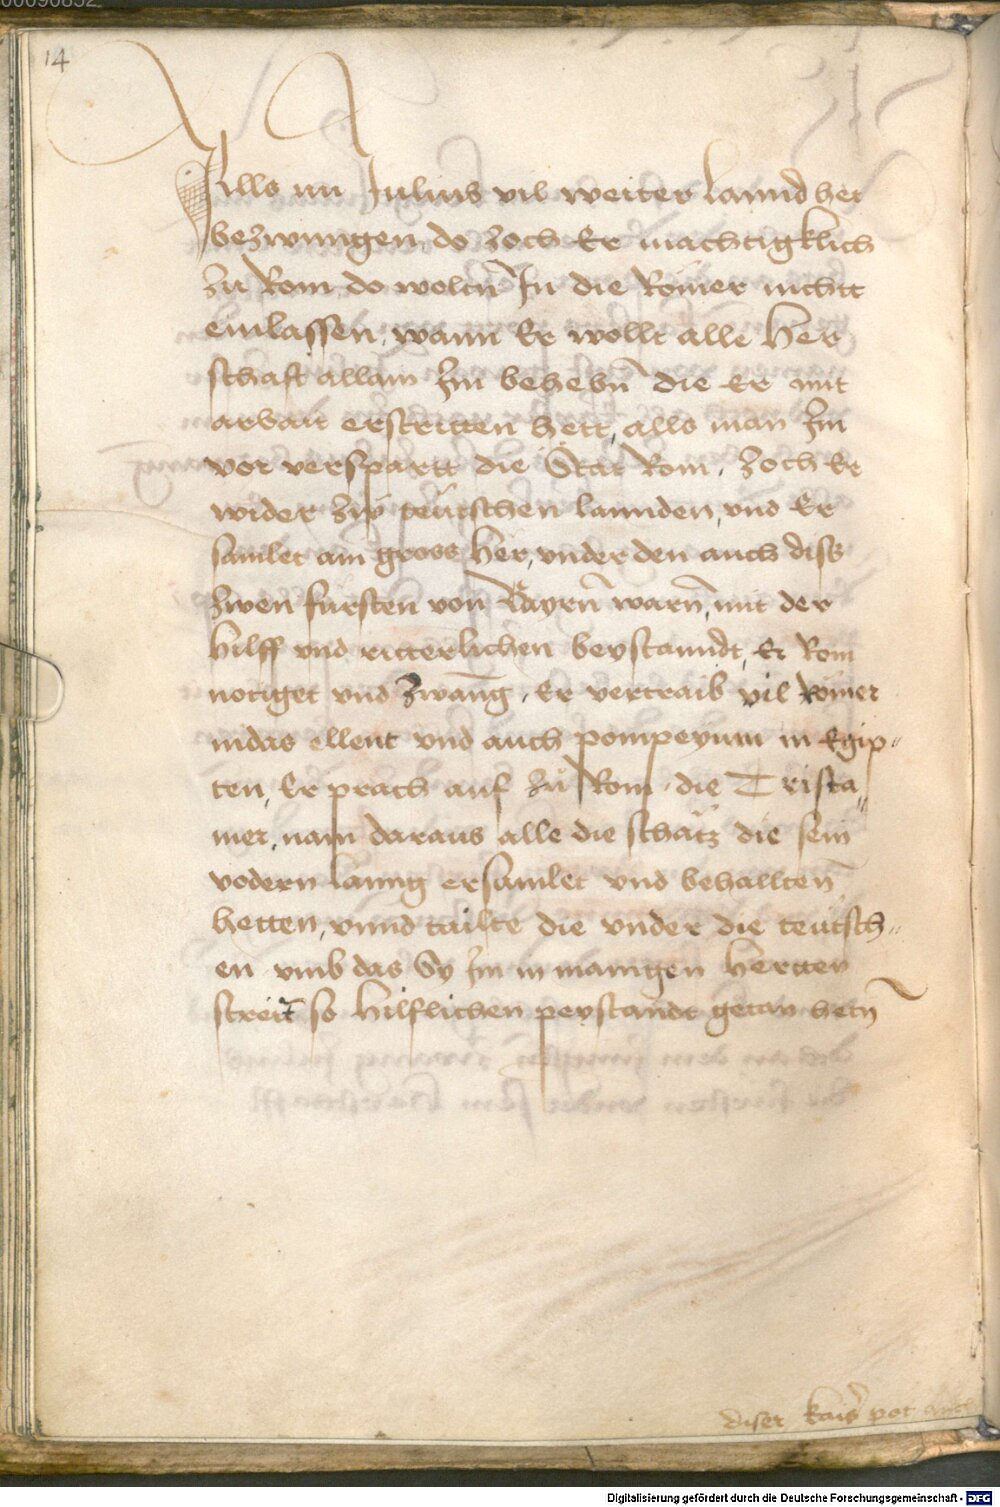 00090852
14
Alls nu Julius vil weiter lannd het
bezwungen, do zoch Er machtigklich
zu Rom do woltn̄ In die Römer nichtt
einlassen, wann Er wollt alle Her
schaft allain Im behebn̄ die Er mit
arbait erstritten hett, alls man Im
vor verspartt die Stat Rom, zoch Er
wider zu teutschen lannden, vnd Er
samlet ain gross her, vnder den auch diss
zwen fürsten von Bayrn̄ warn̄, mit der
hilff vnd ritterlichen beystanndt, Er Rom
notiget vnd zwang, Er vertraib vil Römer
in das ellent vnd auch pompeyum in Egip„
ten, Er prach auf zu Rom, die Trista„
mer, nam daraus alle die schätz die sein
vodern lanng ersamlet vnd behallten̄
hetten, vnnd tailte die vnder die teutsch„
en vmb das Sy Im in manigen hertten
streit so hilflichen peystandt getan hetn̄
diser kais̄ pot auch
Digitalisierung gefördert durch die Deutsche Forschungsgemeinschaft - DFG